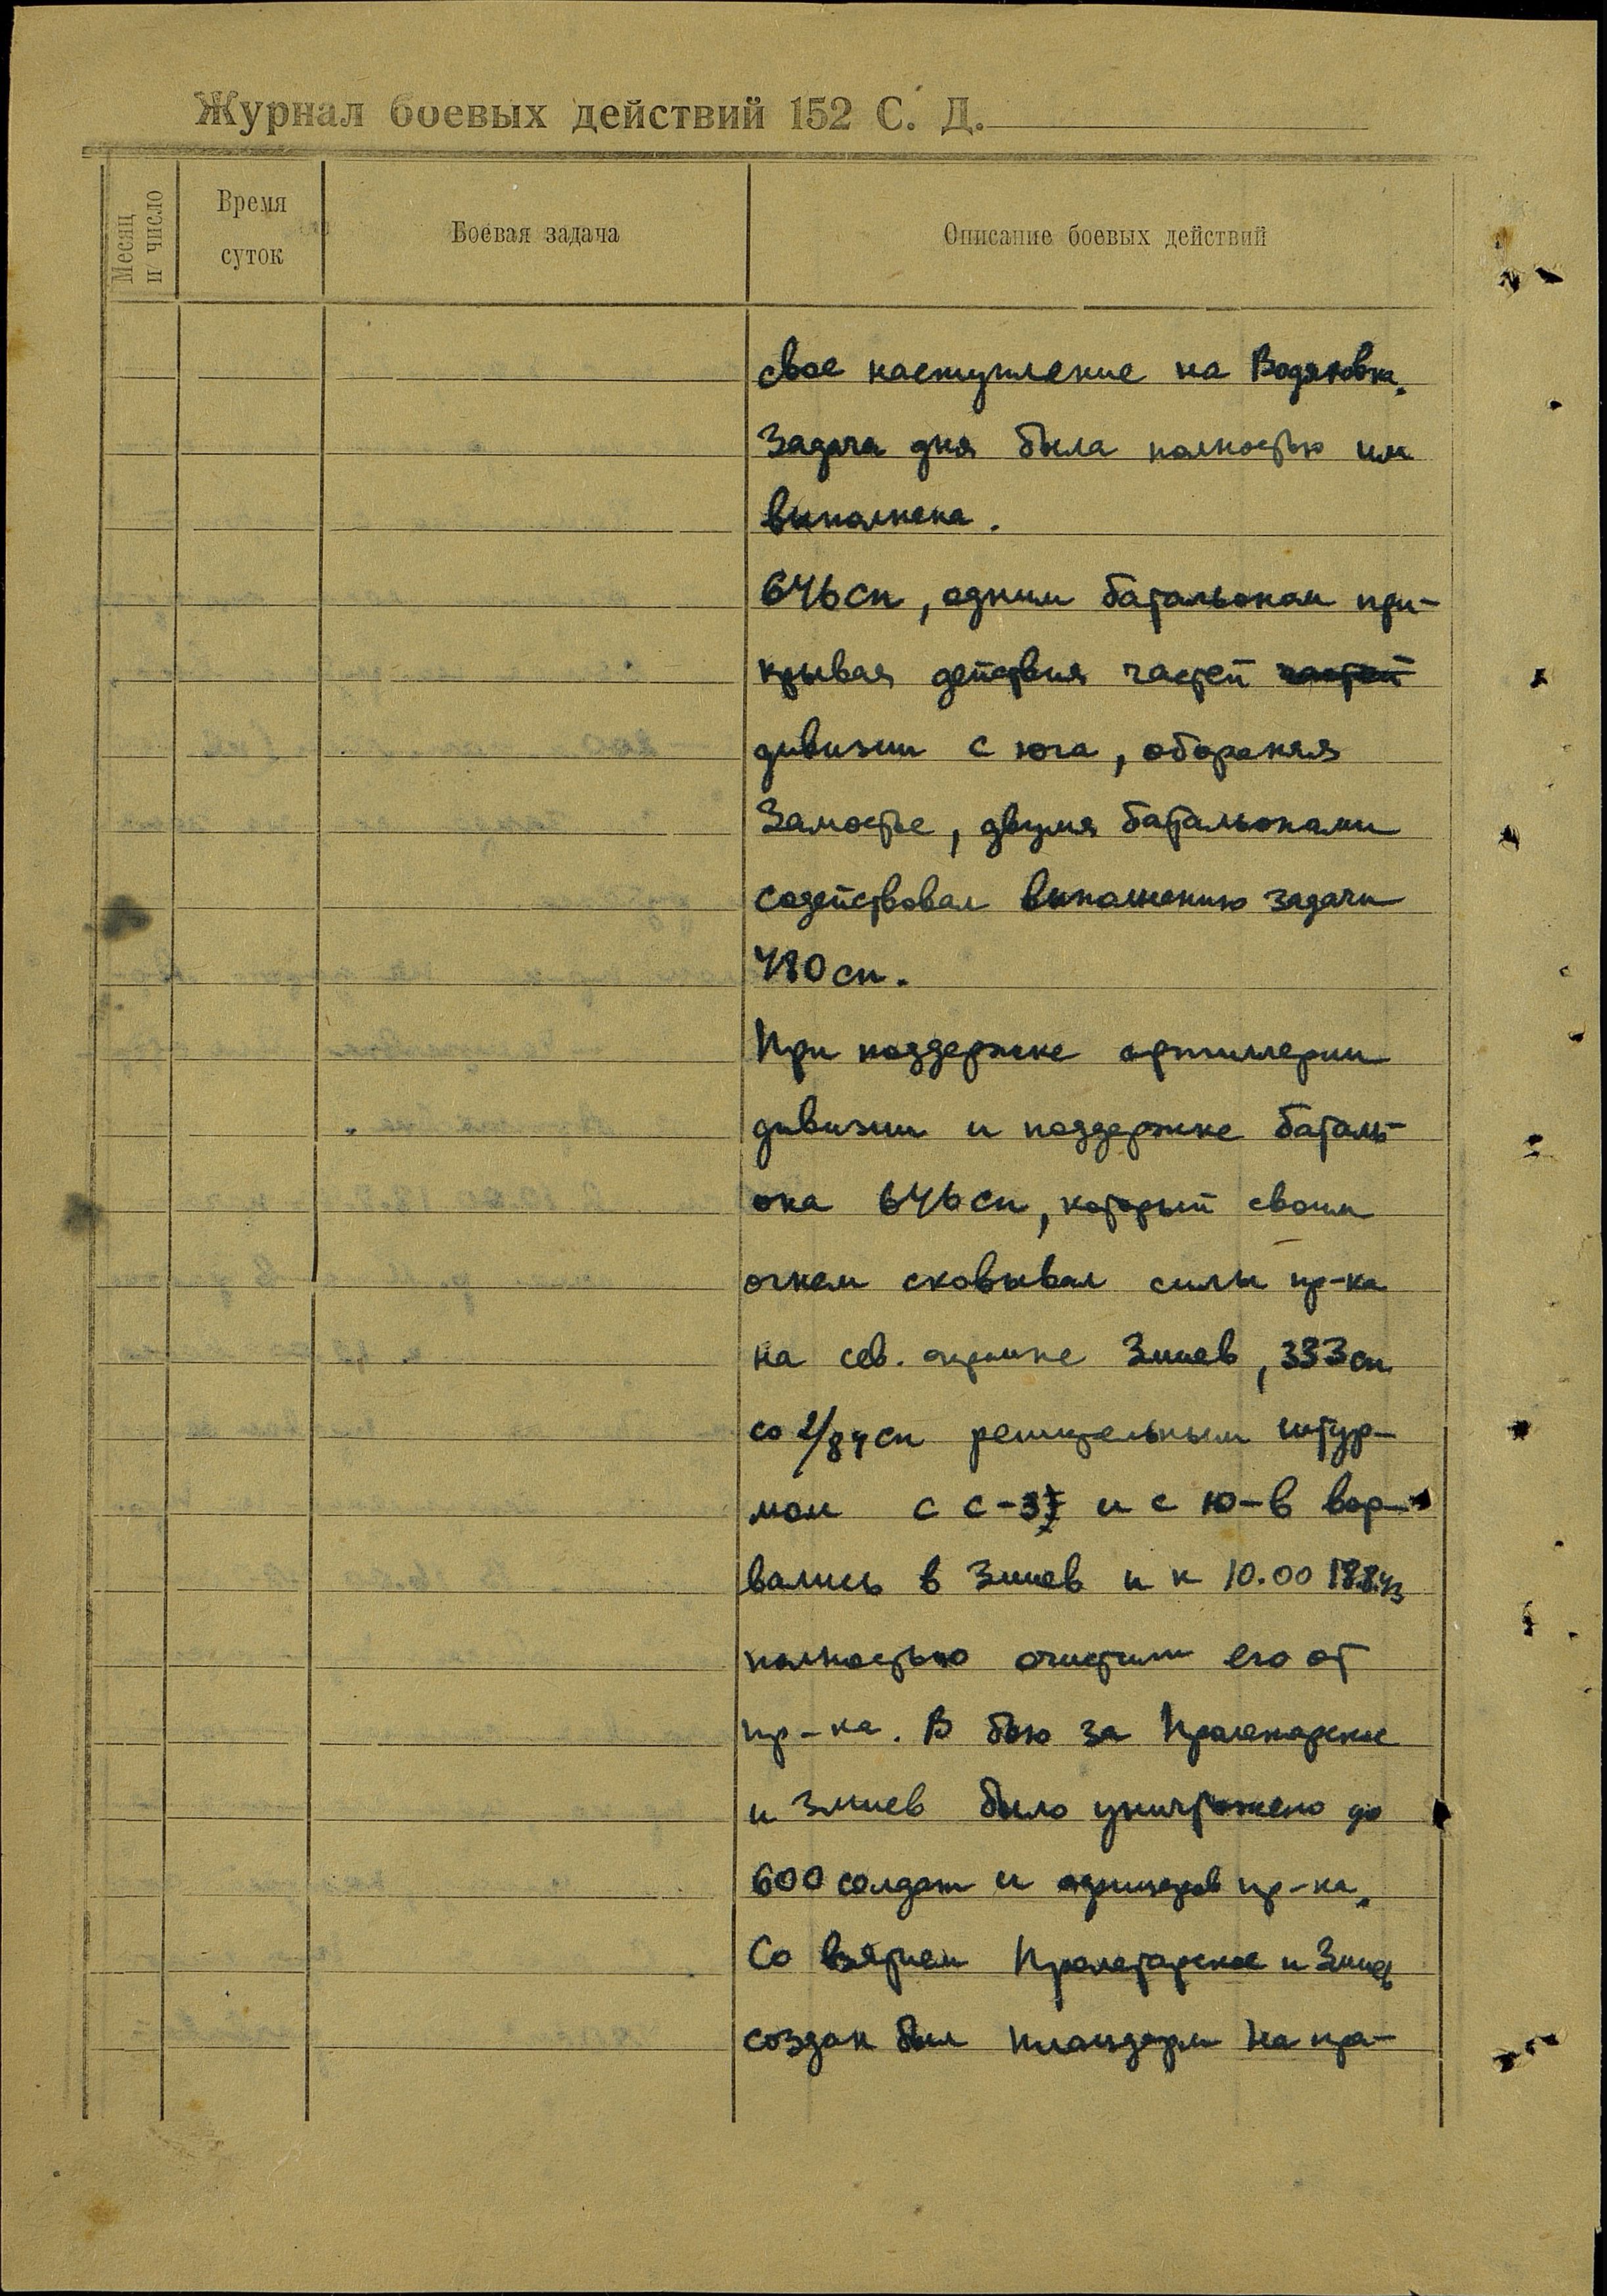 Журнал боевых действий 152 С. Д.
Месяц и число
Время суток
Боевая задача
Описание боевых действий
свое наступление на Водяховка.
Задача дня была полностью им
выполнена.
646 сп, одним батальоном при-
крывая действия частей частей
дивизии с юга, обороняя
Замостье, двумя батальонами
содействовал выполнению задачи
480 сп.
При поддержке артиллерии
дивизии и поддержке баталь-
она 646 сп, который своим
огнем сковывал силы пр-ка
на сев. окраине Змиев, 333 сп
со 2/84 сп решительным штур-
мом с С-З и с Ю-В вор-
вались в Змиев и к 10.00 18.8.43
полностью очистили его от
пр-ка. В бою за Пролетарское
и Змиев было уничтожено до
600 солдат и офицеров пр-ка.
Со взятием Пролетарское и Змиев
создан был плацдарм на пра-